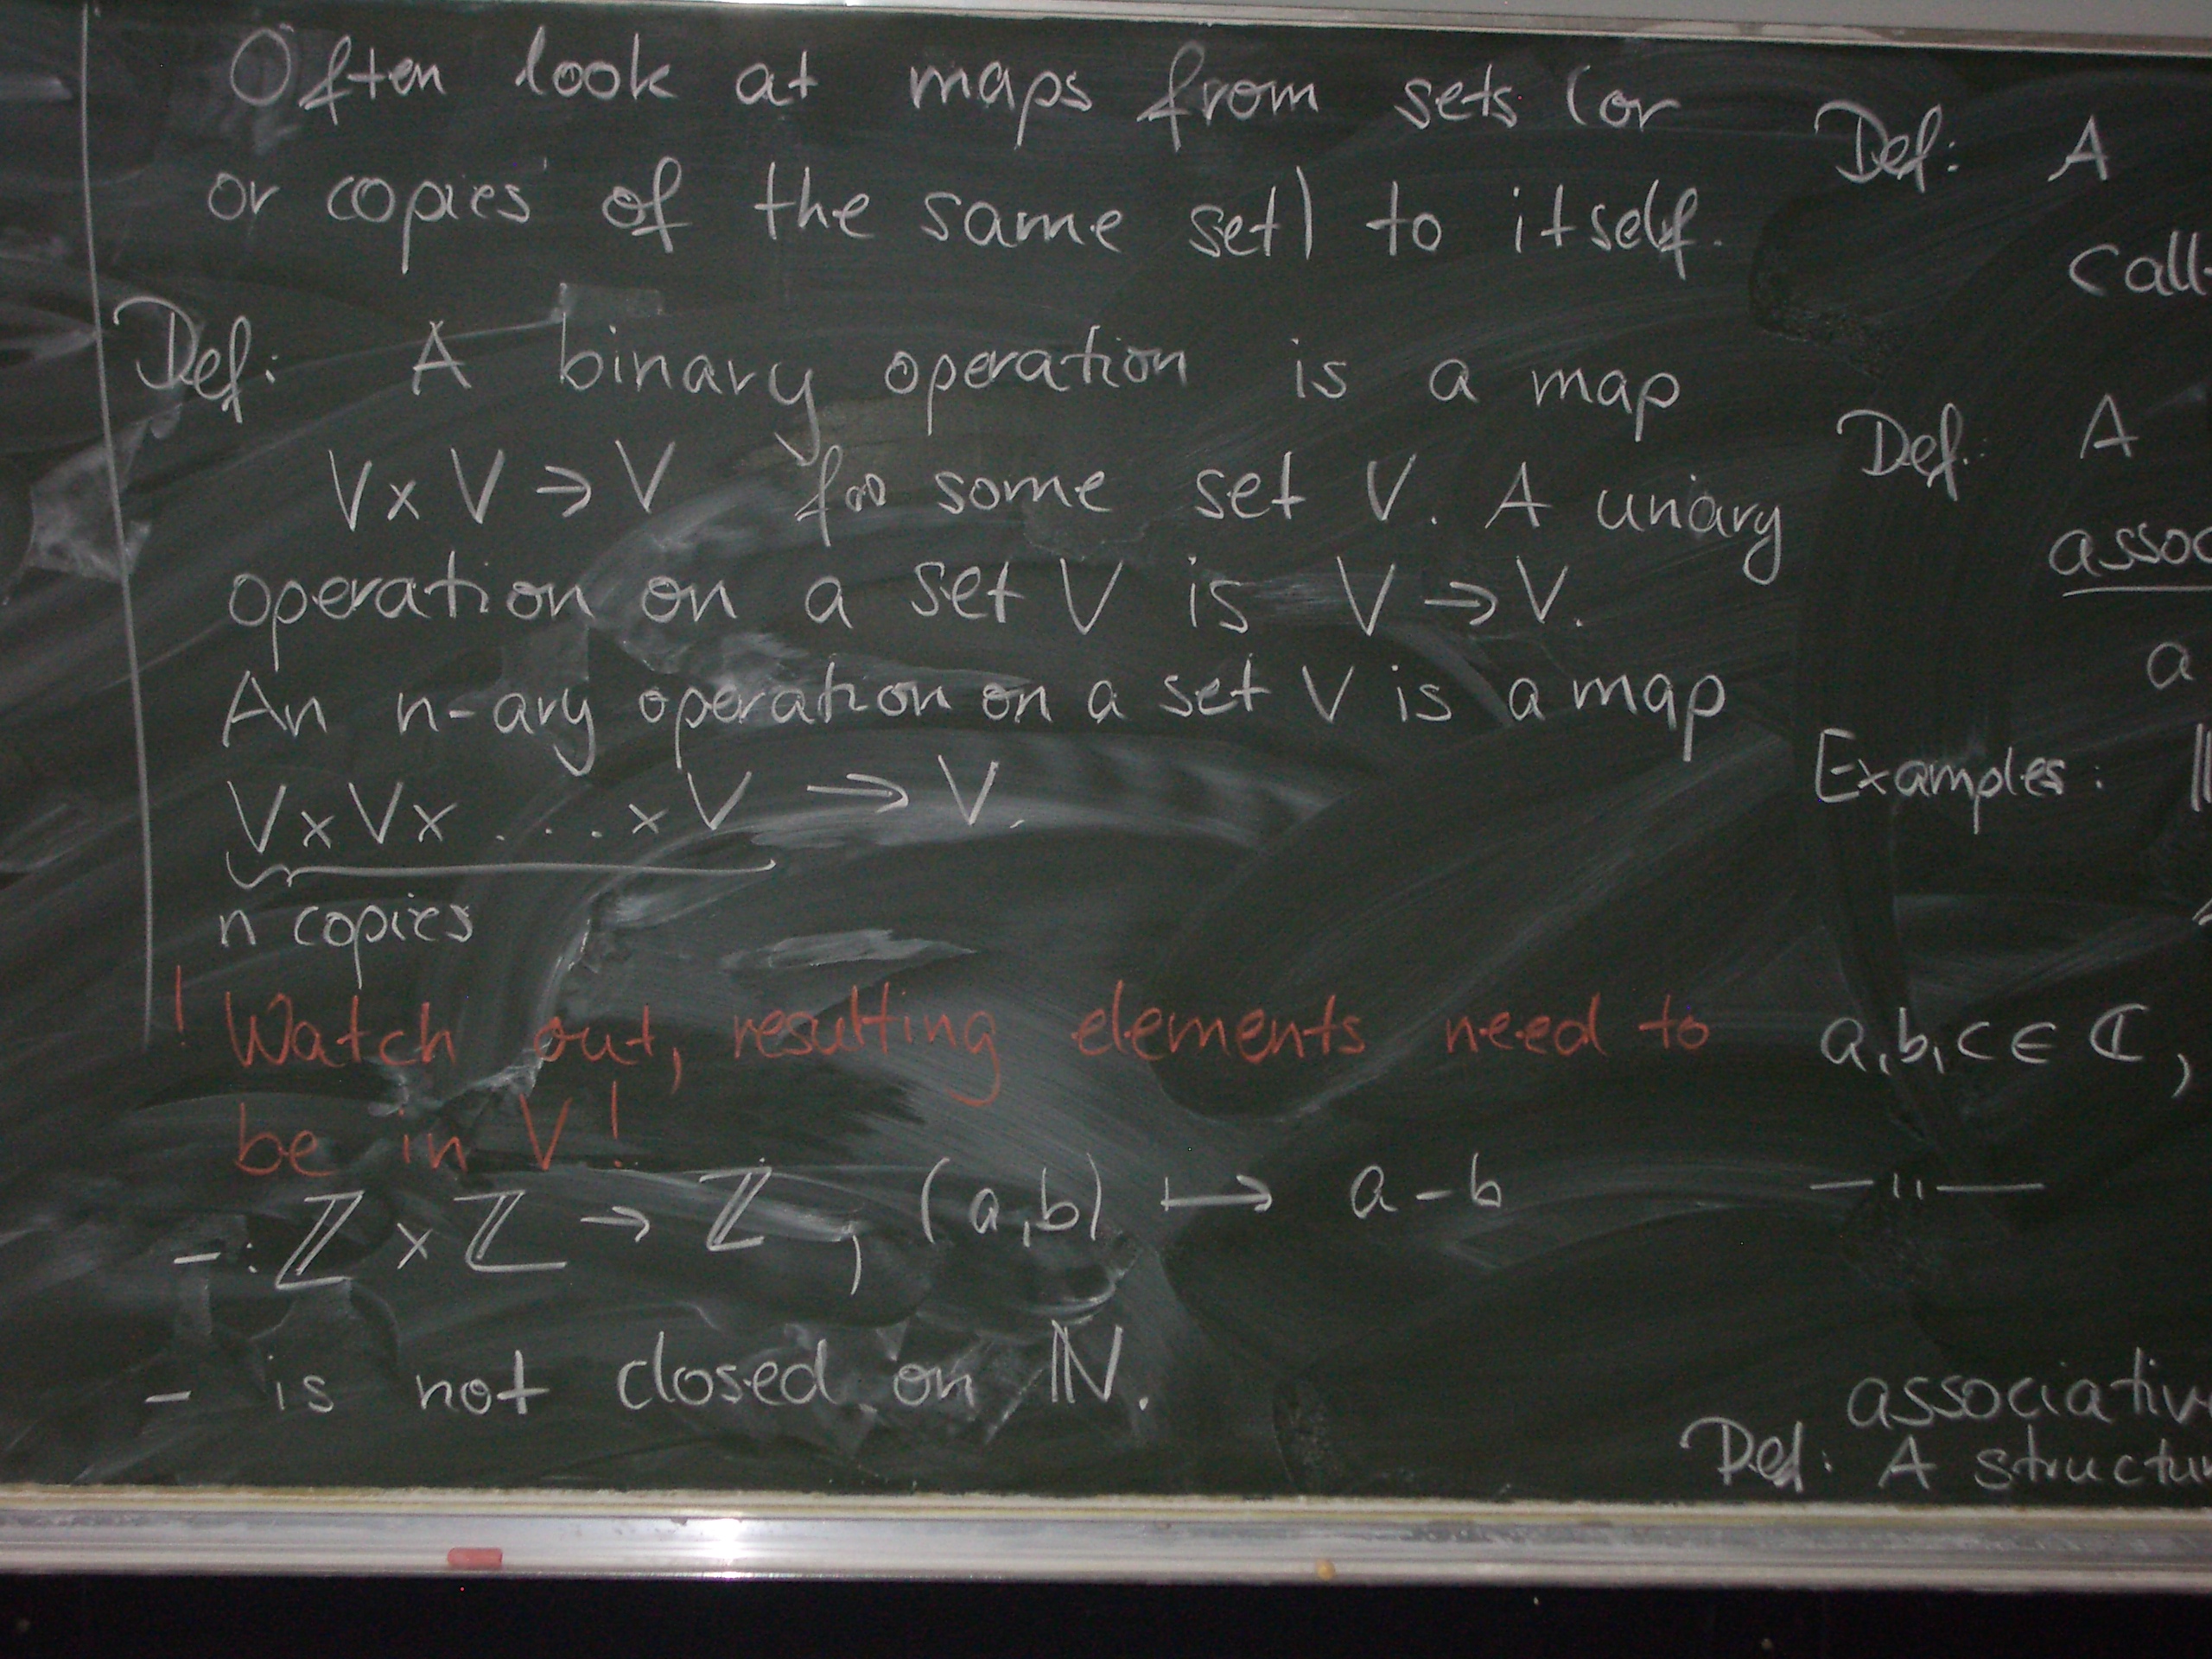 Often look at maps from sets (or
or copies of the same set) to itself.
Def: A binary operation is a map
V x V → V for some set V. A unary
operation on a set V is V → V.
An n-ary operation on a set V is a map
V x V x . . . . x V → V.
n copies
! Watch out, resulting elements need to
be in V !
- : ℤ x ℤ → ℤ , (a,b) ⟼ a - b
- is not closed on ℕ.
Def: A
call
Def: A
assoc
a
Examples:
a,b,c ∈ ℂ,
—"—
associativ
Def: A structur